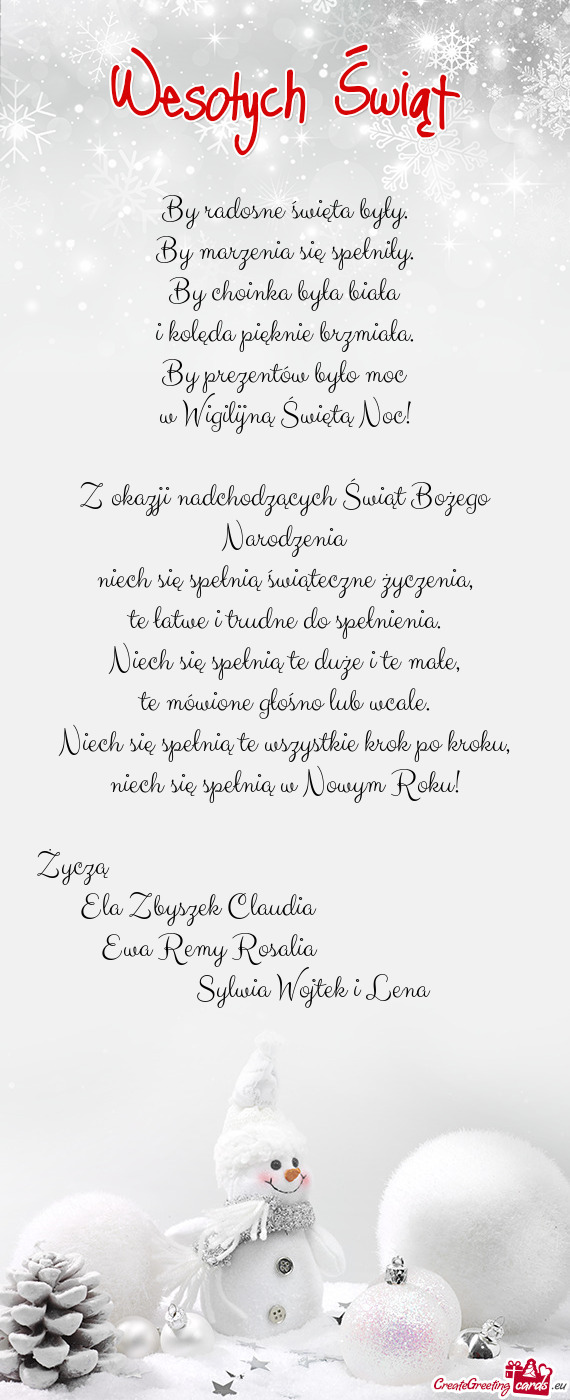 Wesołych Świąt
By radosne święta były.
By marzenia się spełniły.
By choinka była biała
i kolęda pięknie brzmiała.
By prezentów było moc
w Wigilijną Świętą Noc!
Z okazji nadchodzących Świąt Bożego
Narodzenia
niech się spełnią świąteczne życzenia,
te łatwe i trudne do spełnienia.
Niech się spełnią te duże i te małe,
te mówione głośno lub wcale.
Niech się spełnią te wszystkie krok po kroku,
niech się spełnią w Nowym Roku!
Życzą
Ela Zbyszek Claudia
Ewa Remy Rosalia
Sylwia Wojtek i Lena
CreateGreetingcards.eu